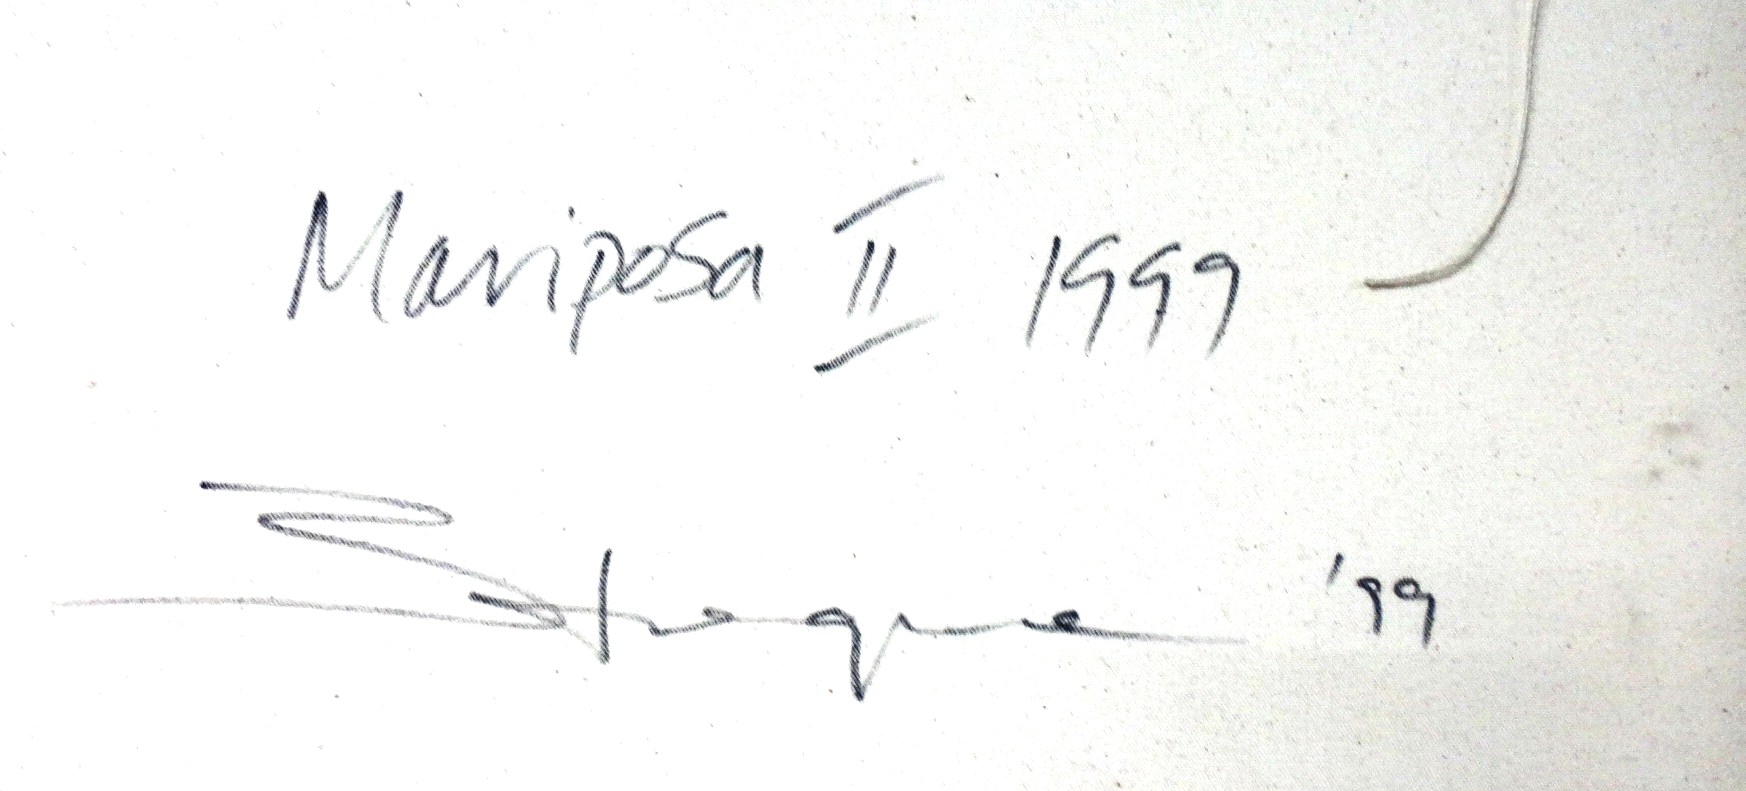 Mariposa II 1999
'99